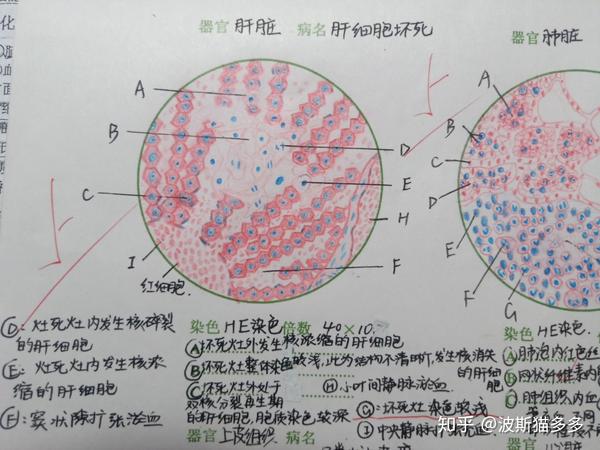 化
器官 肝脏 病名 肝细胞坏死
器官 肺脏
A
B
C
D
E
H
F
I
红细胞.
A
B
C
D
E
F
G
染色 HE染色 倍数 40×10.
Ⓓ: 灶死灶内发生核碎裂
的肝细胞
Ⓔ: 灶死灶内发生核浓
缩的肝细胞
Ⓕ: 窦状隙扩张淤血
Ⓐ坏死灶外发生核浓缩的肝细胞
Ⓑ坏死灶整体染色较浅,此为结构不清晰,发生核消失
的肝细胞
Ⓒ坏死灶外处于
双核分裂再生期
的肝细胞,胞质染色较深
Ⓗ小叶间静脉淤血
Ⓖ:坏死灶 染色较浅
Ⓘ中央静脉扩张淤血
器官 上皮组织. 病名
染色 HE染色.
Ⓐ肺泡内红色丝
Ⓑ网状纤维素
Ⓒ肺组织内血
知乎 @波斯猫多多